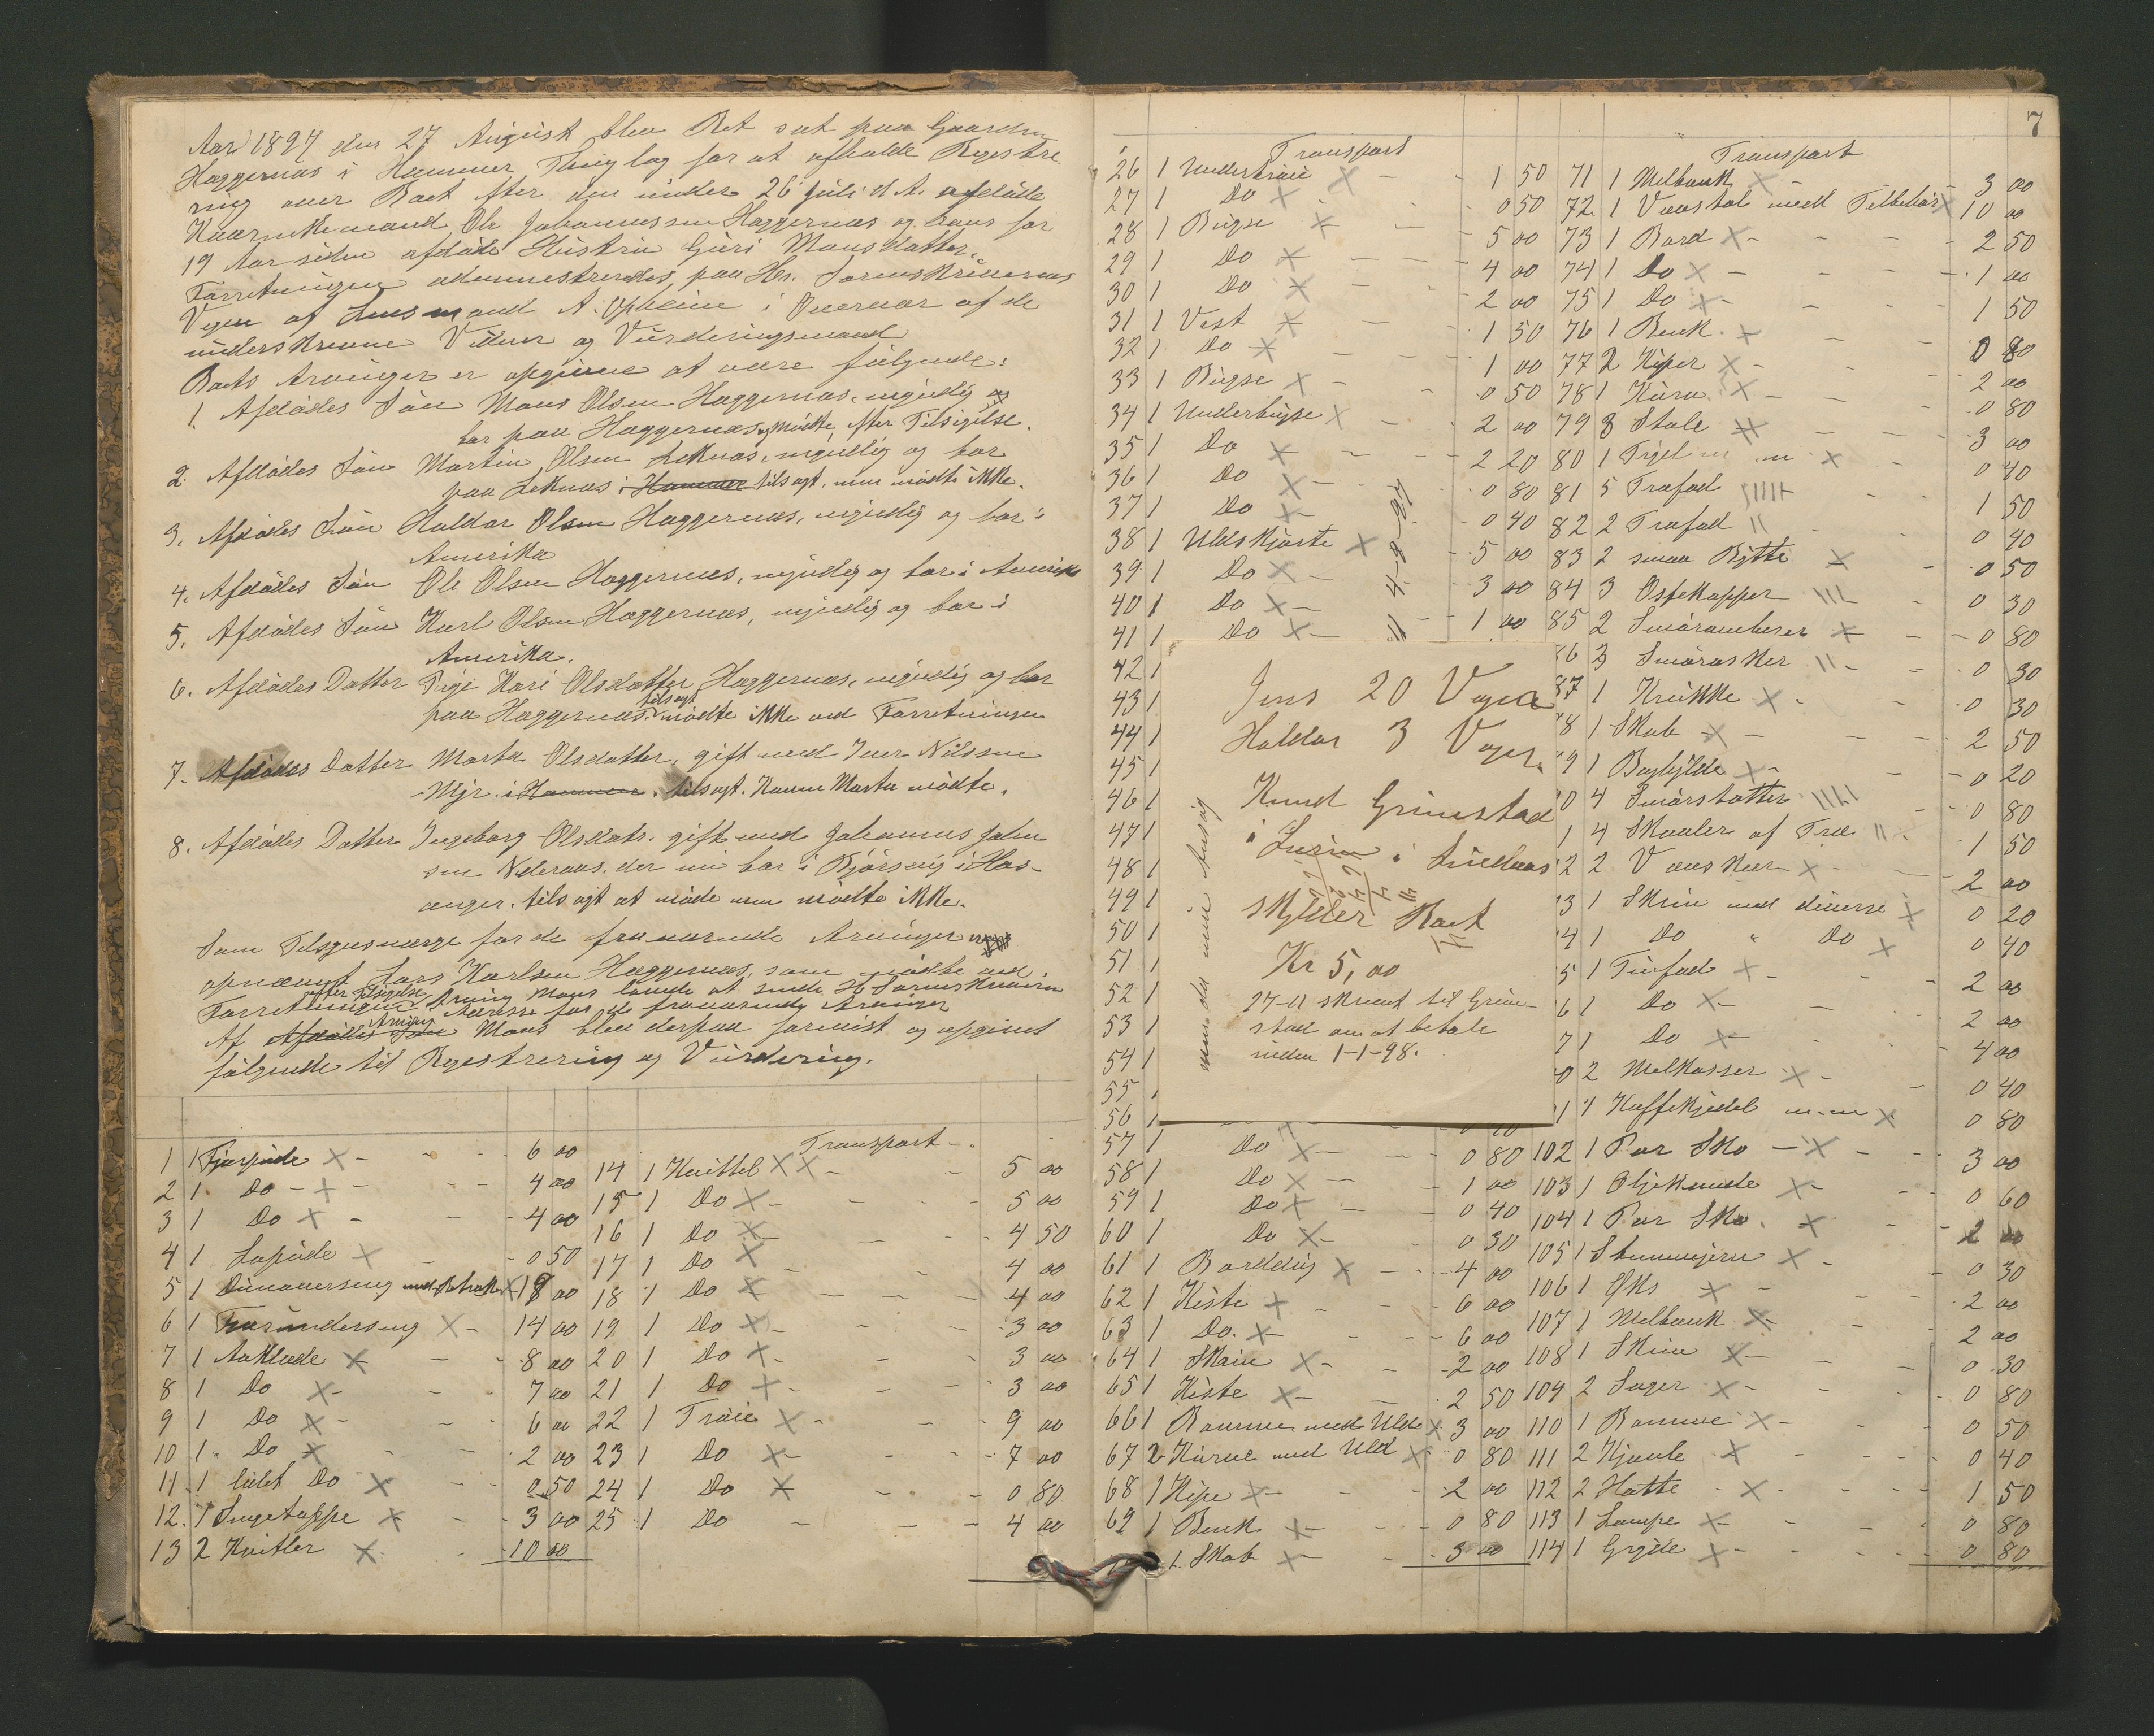 Aar 1897 den 27 August blev Ret sat paa Gaarden
Haggernæs i Hammer Thinglag for at afholde Regestre
ring over Boet efter den under 26 Juli d. A. afdøde
Kaarmand Ole Johannessen Haggernæs og hans for
19 Aar siden afdøde Hustru Guri Monsdatter.
Forretningen administreredes, paa Hr. Sorenskriverens
Vegne af Lensmand A. Opheim i Overvær af de
underskrevne Vidner og Vurderingsmænd
Boets Arvinger er opgivne at være følgende:
1. Afdødes Søn Mons Olsen Haggernæs, myndig og
bor paa Haggernæs og mødte efter Tilsigelse.
2. Afdødes Søn Martin Olsen Leknæs, myndig og bor
paa Leknæs i Hammer tilsagt, men mødte ikke.
3. Afdødes Søn Haldor Olsen Haggernæs, myndig og bor i
Amerika
4. Afdødes Søn Ole Olsen Haggernæs, myndig og bor i Amerika
5. Afdødes Søn Karl Olsen Haggernæs, myndig og bor i
Amerika.
6. Afdødes Datter Pige Kari Olsdatter Haggernæs, myndig og bor
paa Haggernæs. tilsagt mødte ikke ved Forretningen
7. Afdødes Datter Marta Olsdatter, gift med Iver Nilssen
Mjr i Hammer. tilsagt. Konen Marta mødte.
8. Afdødes Datter Ingeborg Olsdatr. gift med Johannes Johan
sen Nideraas, der nu bor i Bjørsvig i Hos-
anger. tilsagt at møde men mødte ikke.
Som Tilsynsværge for de fraværende Arvinger
opnævnt Lars Karlsen Haggernæs, som mødte ved
Forretningen efter Tilsigelse. Arving Mons lovede at sende Hr Sorenskriveren
Adresse for de fraværende Arvinger
Af Afdødes Søn Arving Mons blev derpaa forevist og opgivet
følgende til Regestrering og Vurdering.
1 1 Fjærpude X - 6 00
2 1 Do - X - 4 00
3 1 Do X - 4 00
4 1 Lapude X - 0 50
5 1 Dunoverseng med Betræk X 18 00
6 1 Fjærunderseng X - 14 00
7 1 Aaklæde X - 8 00
8 1 Do X - 7 00
9 1 Do X - 6 00
10 1 Do X - 2 00
11 1 lidet Do X - 0 50
12 1 Sengetæppe X - 3 00
13 2 Kvitler X - 10 00
Transport -
14 1 Kvittel X X - 5 00
15 1 Do X - 5 00
16 1 Do X - 4 50
17 1 Do X - 4 00
18 1 Do X - 4 00
19 1 Do X - 3 00
20 1 Do X - 3 00
21 1 Do X - 3 00
22 1 Trøie X - 9 00
23 1 Do X - 7 00
24 1 Do X - 0 80
25 1 Do - 4 00
7
Transport
26 1 Undertrøie X - 1 50
27 1 Do X - 0 50
28 1 Bugse X - 5 00
29 1 Do X - 4 00
30 1 Do X - 2 00
31 1 Vest X - 1 50
32 1 Do X - 1 00
33 1 Bugse X - 0 50
34 1 Underbugse X - 2 00
35 1 Do X - 2 20
36 1 Do X - 0 80
37 1 Do X - 0 40
38 1 Uldskjorte X - 5 00
39 1 Do X - 3 00
40 1 Do X - 1 00
41 1 Do X -
42 1
43 1
44 1
45 1
46 1
47 1
48 1
49 1
50 1
51 1
52 1
53 1
54 1
55 1
56 1
57 1 Do X - 0 80
58 1 Do X - 1 00
59 1 Do X - 0 40
60 1 Do X - 0 30
61 1 Borddug X - 4 00
62 1 Kiste X - 6 00
63 1 Do. X - 6 00
64 1 Skrin X - 2 00
65 1 Kiste X - 2 50
66 1 Bomme med Uld X 3 00
67 2 Kurve med Uld X 0 80
68 1 Kipe X - 2 00
69 1 Benk X - 0 80
1 Skab X - 3 00
Jens 20 Voger
Haldor 3 Voger
Knud Grimstad
i Lurim i Lindaas
skylder Boet
Kr 5,00
27-11 skrevet til Grim-
stad om at betale
inden 1-1-98.
Transport
71 1 Melbenk X 3 00
72 1 Vævstol med Tilbehør X 10 00
73 1 Bord X - 2 50
74 1 Do X - 1 00
75 1 Do X - 1 50
76 1 Benk X 0 80
77 2 Kiper X - 2 00
78 1 Kurv X - 0 80
79 8 Stole X - 3 00
80 1 X 0 40
81 5 Træfad - 1 50
82 2 Træfad - 0 40
83 2 smaa Bøtte X 0 50
84 3 Ostekopper - 0 30
85 2 Smørambarer X - 0 80
86 3 Smørasker - 0 30
87 1 Krukke X - 0 30
8 1 Skab X - 2 50
9 1 Boghylde X - 0 20
0 4 Smørstøtter 0 80
1 4 Skaaler af Træ 1 50
2 2 Vævskeer X - 2 00
3 1 Skrin med diverse X 0 20
4 1 Do " Do X 0 40
5 1 Tinfad X - 2 00
6 1 Do X - 2 00
7 1 Do X - 4 00
0 2 Melkasser X - 0 40
1 1 Kaffekjedel m.m X 0 80
102 1 Par Sko - X - 3 00
103 1 Oljeknude X - 0 60
104 1 Par Sko X - 2 00
105 1 Stemmejern X - 0 30
106 1 Øks X - 2 00
107 1 Melbenk X - 2 00
108 1 Skrin X - 0 30
109 2 Sager X - 0 80
110 1 Bomme X - 0 50
111 2 Kjævle X - 0 40
112 2 Hatte X - 1 50
113 1 Lampe X - 0 80
114 1 Gryde X - 0 80